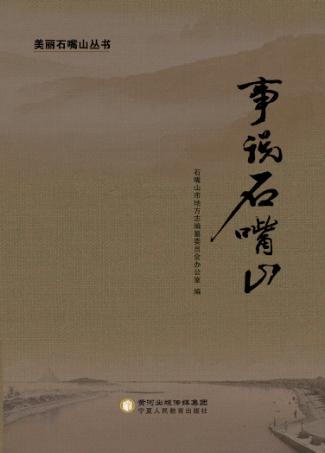 美丽石嘴山丛书
事说石嘴山
石嘴山市地方志编纂委员会办公室 编
黄河出版传媒集团
宁夏人民教育出版社